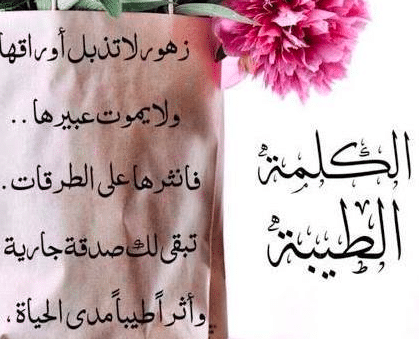 الكلمة
الطيبة
زهور لا تذبل أوراقها
ولا يموت عبيرها ..
فانثرها على الطرقات .
تبقى لك صدقة جارية
وأثراً طيباً مدى الحياة .